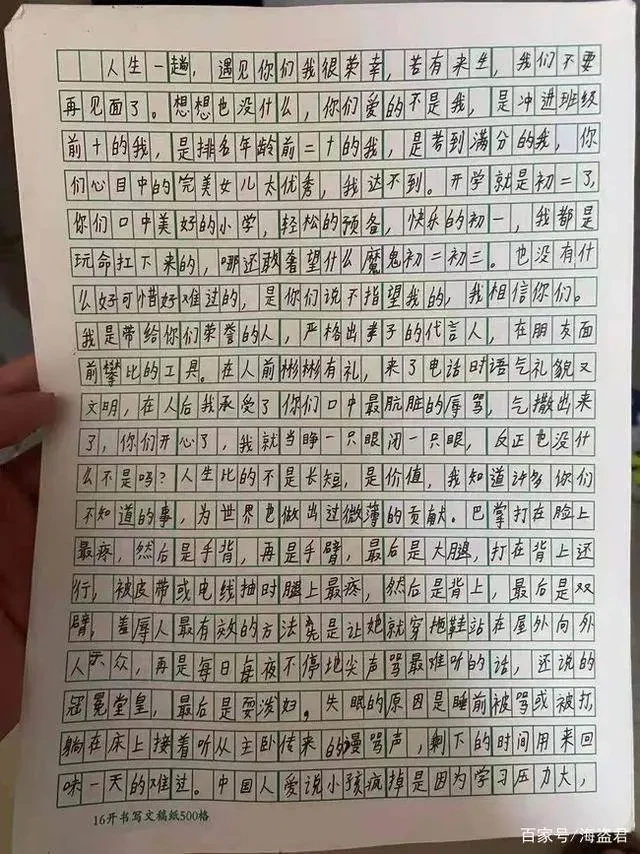 人生一趟，遇见你们我很荣幸，若有来生，我们不要
再见面了。想想也没什么，你们爱的不是我，是冲进班级
前十的我，是排名年龄前二十的我，是考到满分的我，你
们心目中的完美女儿太优秀，我达不到。开学就是初二了，
你们口中美好的小学，轻松的预备，快乐的初一，我都是
玩命扛下来的，哪还敢奢望什么魔鬼初二初三。也没有什
么好可惜好难过的，是你们说不指望我的，我相信你们。
我是带给你们荣誉的人，严格出孝子的代言人，在朋友面
前攀比的工具。在人前彬彬有礼，来了电话时语气礼貌又
文明，在人后我承受了你们口中最肮脏的辱骂，气撒出来
了，你们开心了，我就当睁一只眼闭一只眼，反正也没什
么不是吗？人生比的不是长短，是价值，我知道许多你们
不知道的事，为世界也做出过微薄的贡献。巴掌打在脸上
最疼，然后是手背，再是手臂，最后是大腿，打在背上还
行，被皮带或电线抽时腿上最疼，然后是背上，最后是双
臂，羞辱人最有效的方法先是让她就穿拖鞋站在屋外向外
人示众，再是每日每夜不停地尖声骂最难听的话，还说的
冠冕堂皇，最后是耍泼妇。失眠的原因是睡前被骂或被打，
躺在床上接着听从主卧传来的谩骂声，剩下的时间用来回
味一天的难过。中国人爱说小孩疯掉是因为学习压力大，
16开书写文稿纸500格
百家号/海盗君